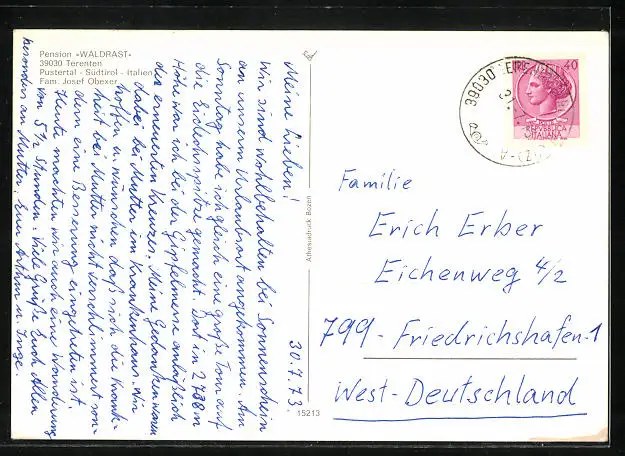 Pension «WALDRAST»
39030 Terenten
Pustertal - Südtirol - Italien
Fam. Josef Obexer
30.7.73.
Meine Lieben!
Wir sind wohlbehalten bei Sonnenschein
an unserem Urlaubsort angekommen. Am
Sonntag habe ich gleich eine große Tour auf
die Eidechsspitze gemacht. Dort in 2738 m
Höhe war ich bei der Gipfelmesse anläßlich
des erneuerten Kreuzes. Meine Gedanken waren
dabei bei Mutter im Krankenhaus. Wir
hoffen u. wünschen daß sich die Krank-
heit bei Mutter nicht verschlimmert son-
dern eine Besserung eingetreten ist.
Heute machten wir auch eine Wanderung
von 5 1/2 Stunden. Viele Grüße Euch Allen
besonders an Mutter, Eure Arthur u. Inge.
Athesiadruck Bozen
15213
39030 TERENTEN
40
REPVBBLICA
ITALIANA
Familie
Erich Erber
Eichenweg 4/2
799-Friedrichshafen-1
West-Deutschland